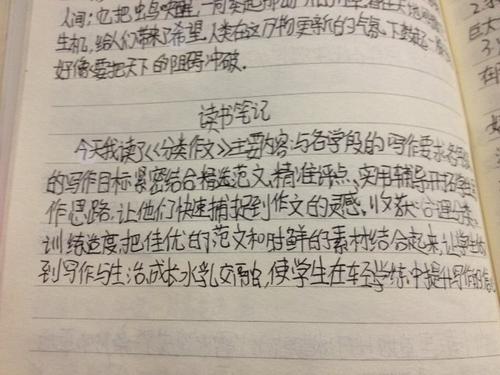 人间;它把虫鸟唤醒,
生机,给人们带来了希望,人类在这万物更新的气氛下
好像要把天下的阻碍冲破.
读书笔记
今天我读了《分类作文》主要内容:与各学段的写作要求
的写作目标紧密结合精选范文,精准评点、实用辅导开拓学生
作思路.让他们快速捕捉到作文的灵感,收获合理分类.
训练适度,把佳优的范文和时鲜的素材结合起来,让学生
到写作与生活,成长水乳交融,使学生在轻学练中提升写作的